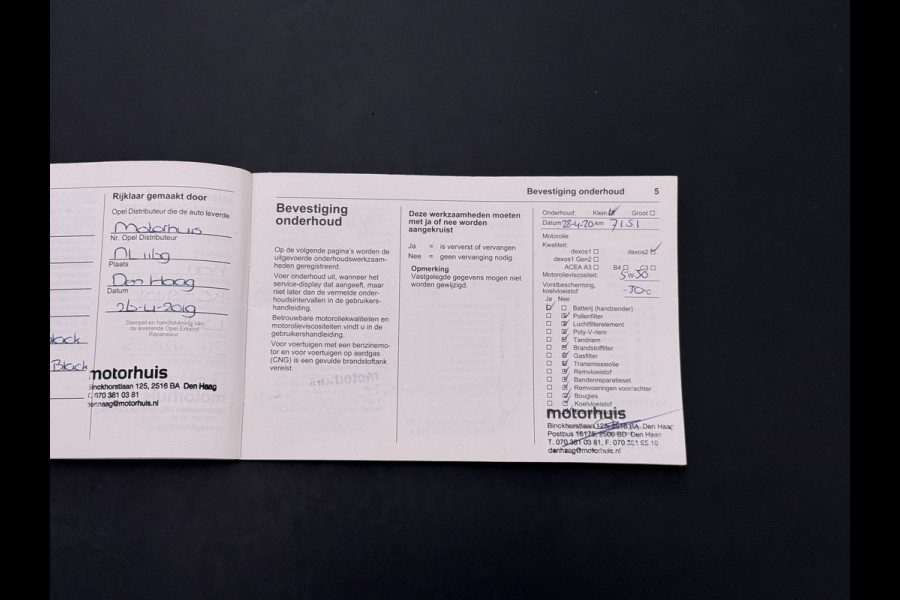 Rijklaar gemaakt door
Opel Distributeur die de auto leverde
Motorhuis
Nr. Opel Distributeur
NL
Plaats
Den Haag
Datum
26-4-2019
Stempel en handtekening van
de leverende Opel Erkend
Reparateur
Black
Black
motorhuis
Binckhorstlaan 125, 2516 BA Den Haag
T. 070 381 03 81
denhaag@motorhuis.nl
Bevestiging onderhoud 5
Bevestiging
onderhoud
Op de volgende pagina's worden de
uitgevoerde onderhoudswerkzaam-
heden geregistreerd.
Voer onderhoud uit, wanneer het
service-display dat aangeeft, maar
niet later dan de vermelde onder-
houdsintervallen in de gebruikers-
handleiding.
Betrouwbare motoroliekwaliteiten en
motorolieviscositeiten vindt u in de
gebruikershandleiding.
Voor voertuigen met een benzinemo-
tor en voor voertuigen op aardgas
(CNG) is een gevulde brandstoftank
vereist.
Deze werkzaamheden moeten
met ja of nee worden
aangekruist
Ja = is ververst of vervangen
Nee = geen vervanging nodig
Opmerking
Vastgelegde gegevens mogen niet
worden gewijzigd.
Onderhoud: Klein Groot
Datum 28-4-20 km 7151
Motorolie
Kwaliteit:
dexos1 dexos2
dexos1 Gen2
ACEA A3 B4
Motorolieviscositeit: 5W-30
Vorstbescherming,
koelvloeistof -30°C
Ja Nee
Batterij (handzender)
Pollenfilter
Luchtfilterelement
Poly-V-riem
Tandriem
Brandstoffilter
Gasfilter
Transmissieolie
Remvloeistof
Bandenreparatieset
Remvoeringen voor/achter
Bougies
Koelvloeistof
motorhuis
Binckhorstlaan 125, 2516 BA Den Haag
Postbus 16175, 2500 BD Den Haag
T. 070 381 03 81, F. 070 381 95 10
denhaag@motorhuis.nl